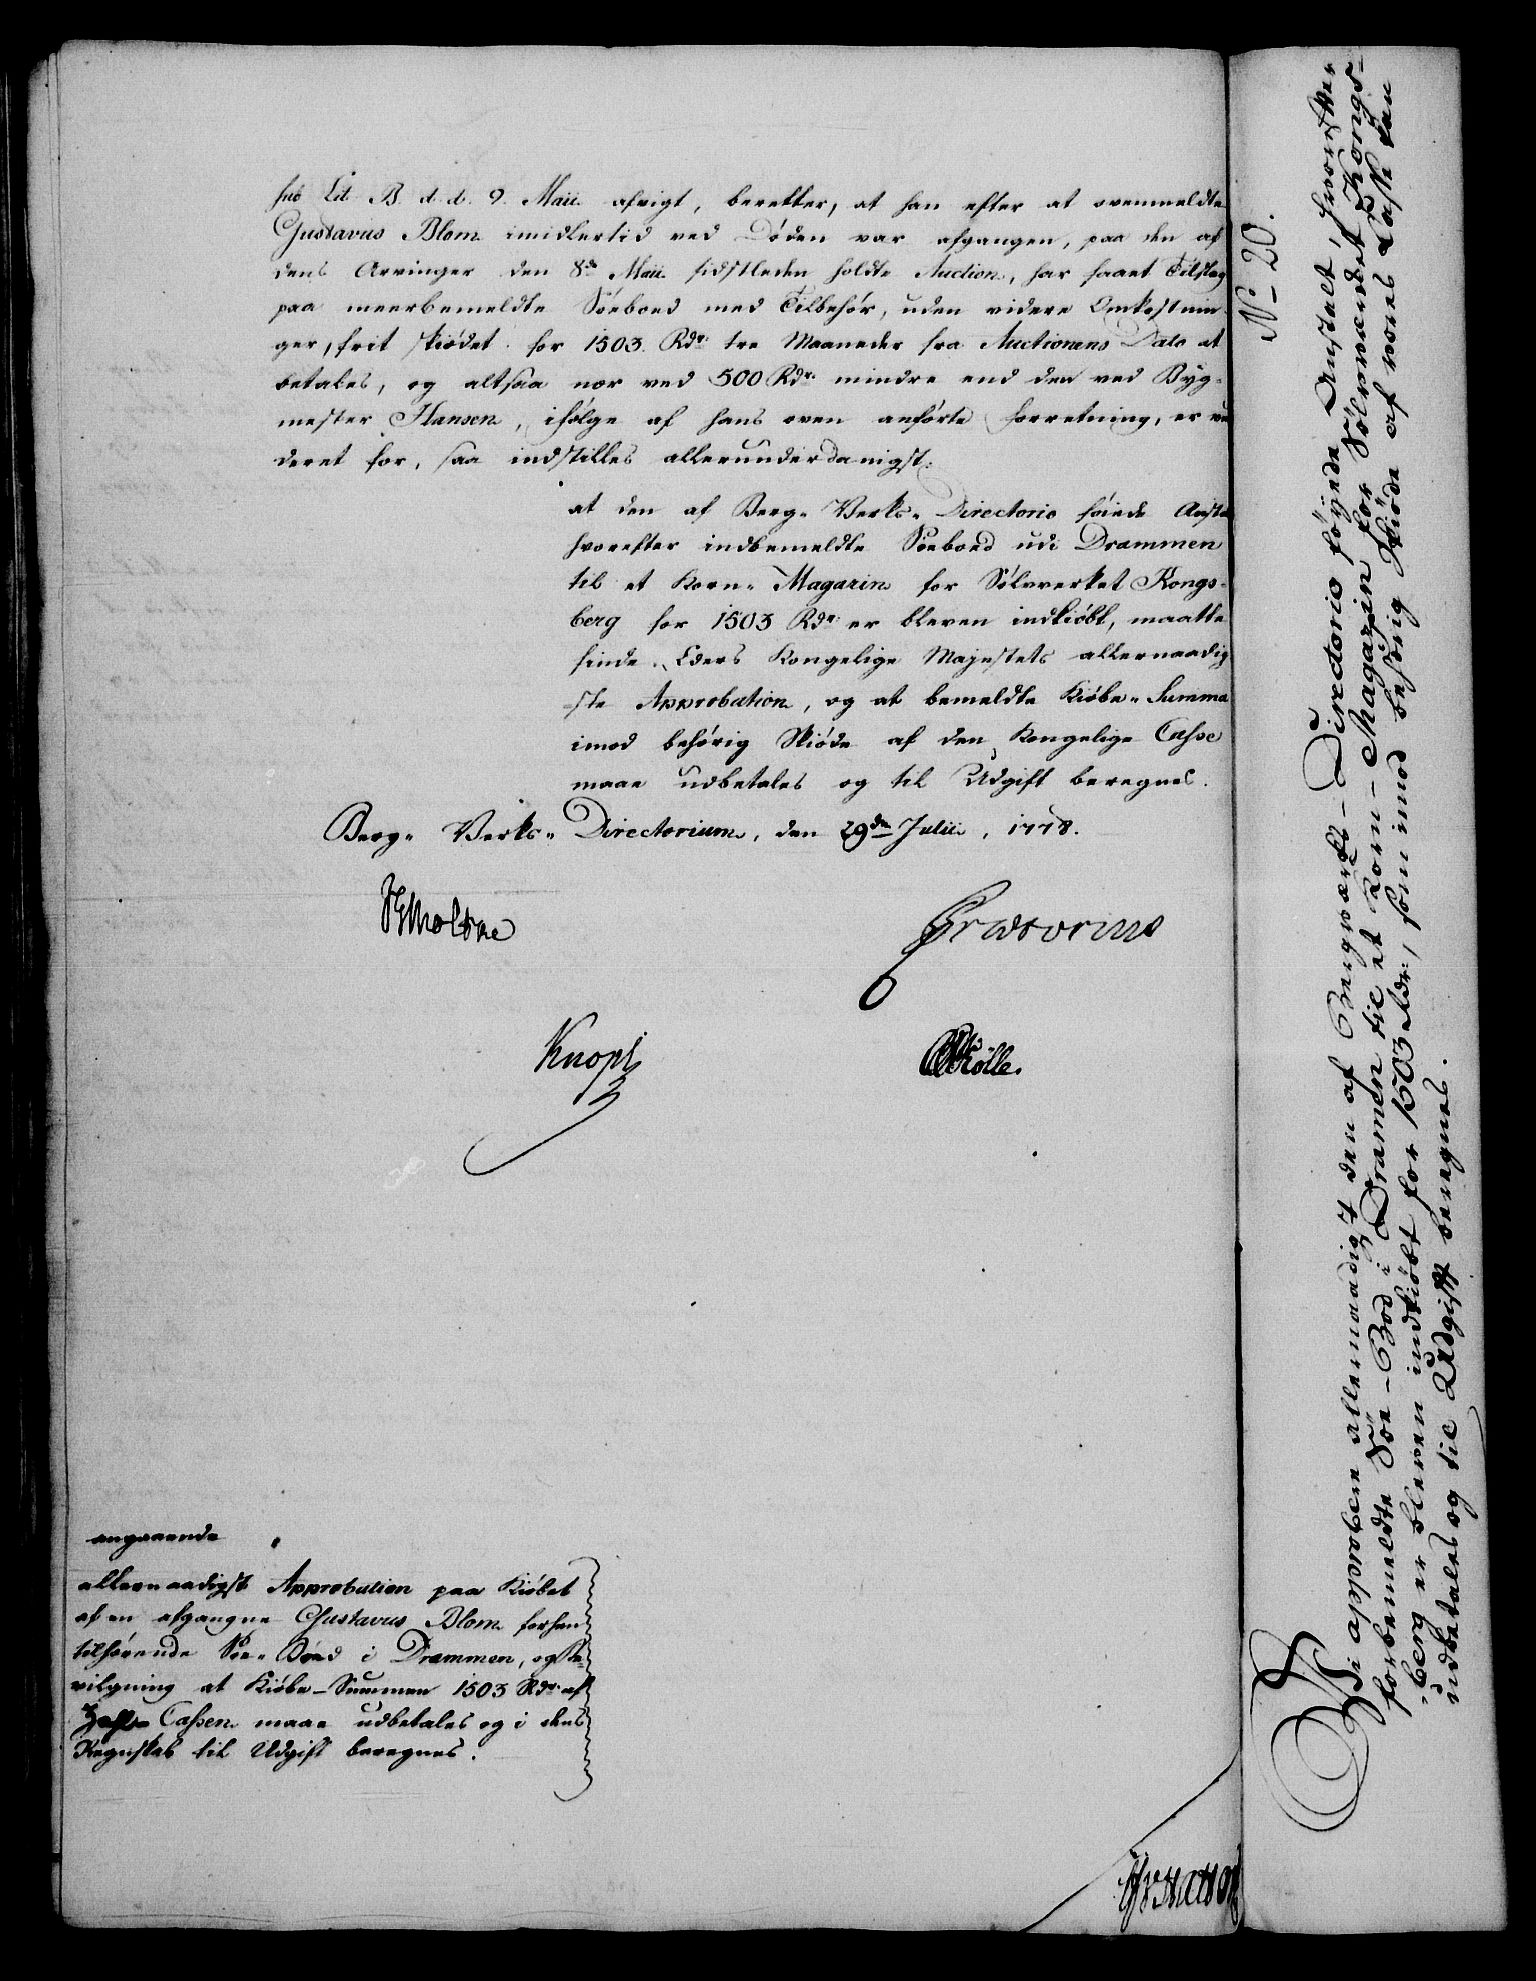 sub Lit. B. d. d. 9. Maii afvigt, beretter, at han efter at ovenmeldte
Gustavus Blom imidlertid ved Døden var afgangen, paa den af
dens Arvinger den 8de Maii sidstleden holdte Auction, har faaet Tilslag
paa meerbemeldte Söeboed med Tilbehör, uden videre Omkostnin-
ger, frit skiödet for 1503 Rdr: tre Maaneder fra Auctionens Dato at
betales, og altsaa nær ved 500 Rdr. mindre end den ved Byg-
mester Hansen, ifølge af hans oven anförte Forretning, er vur
deret for, saa indstilles allerunderdanigst:
at den af Berg- Verks- Directorio föiede Anstalt
hvorefter indbemeldte Söeboed udi Drammen
til et Korn- Magazin for Sölvverket Kongs-
berg for 1503 Rdr: er bleven indkiöbt, maatte
finde Eders Kongelige Majestets allernaadig-
ste Approbation, og at bemeldte Kiöbe- Summa
imod behörig Skiöde af den Kongelige Casse
maae udbetales og til Udgift beregnes.
Berg- Verks- Directorium, den 29de Julii, 1778.
JGMoltke
Prætorius
Knopf
Rölle.
angaaende
allernaadigst Approbation paa Kiöbet
af en afgangne Gustavus Blom forhen
tilhörende Söe- Boed i Drammen, og Be-
vilgning at Kiöbe- Summen 1503 Rdr. af
Zahl- Cassen maae udbetales og i dens
Regnskab til Udgift beregnes.
No 20.
Vi approbere allernaadigst den af Bergværks- Directorio föyede Anstalt, hvorefter
forbemeldte Söe- Bod i Dramen til et Korn- Magazin for Sölvværket Kongs-
berg er bleven indkiöbt for 1503 Rdr:, som imod behörig Skiöde af vores Casse kan
udbetales og til Udgift beregnes.